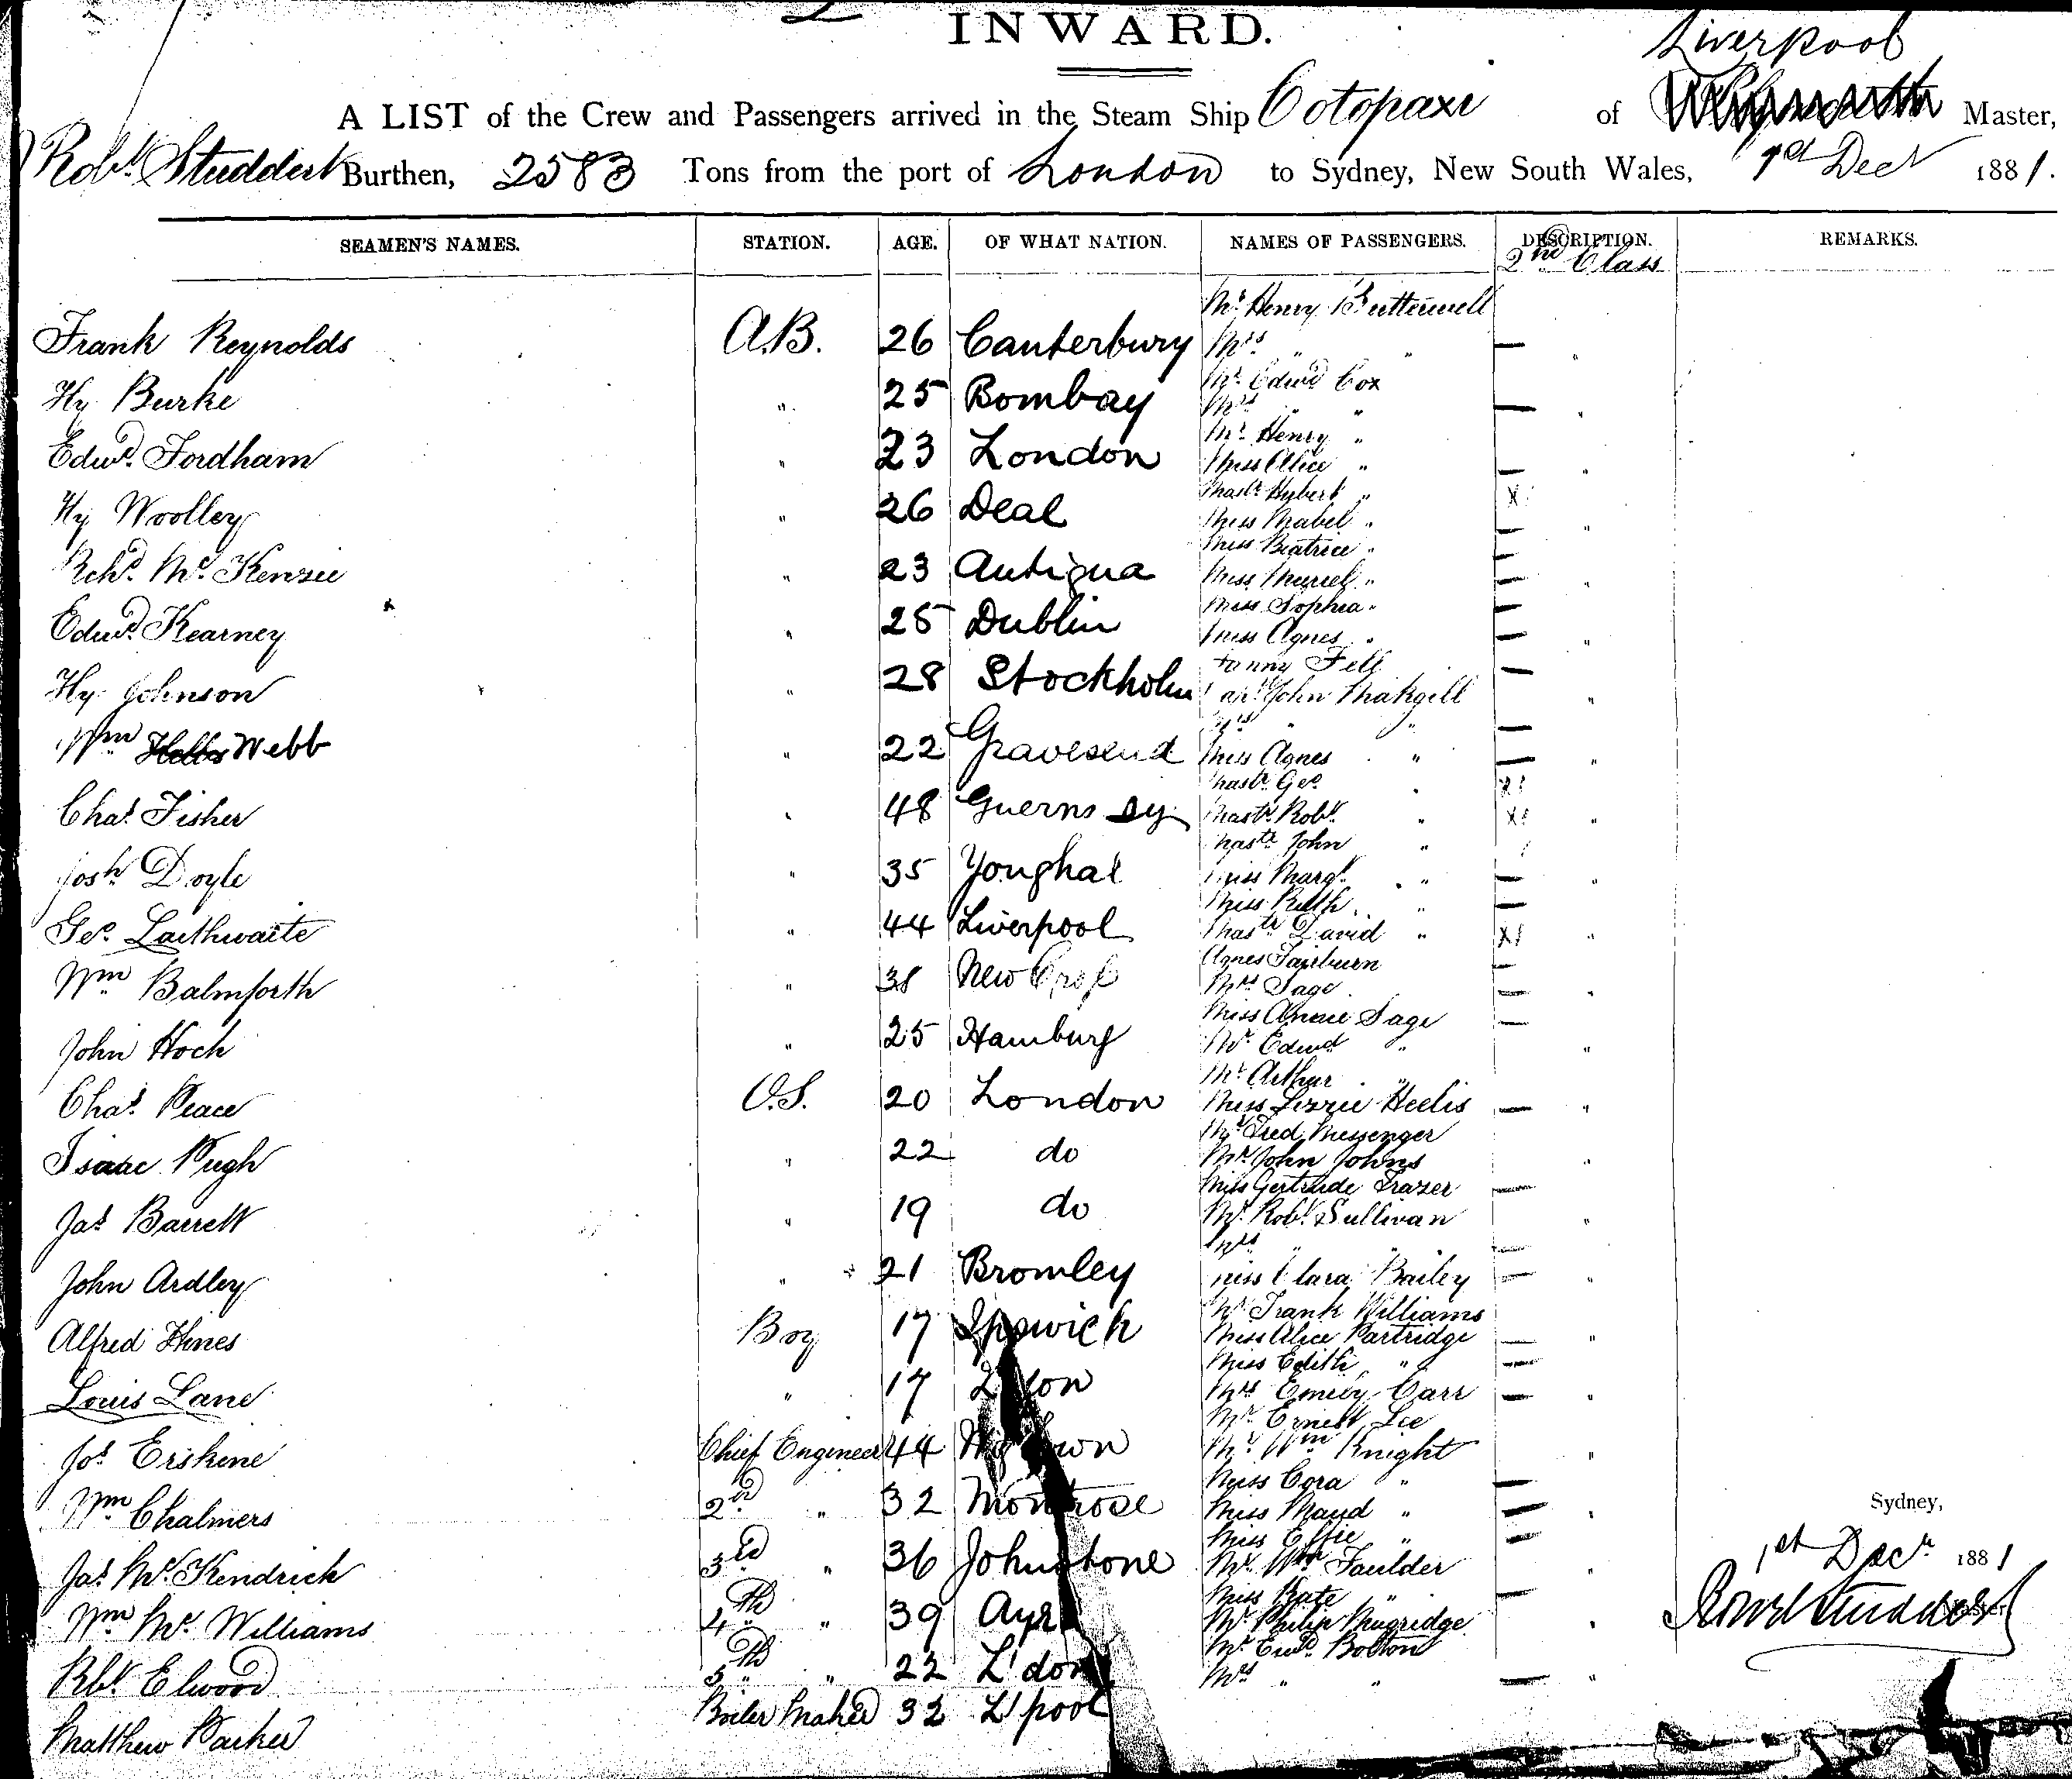 INWARD.
Liverpool
A LIST of the Crew and Passengers arrived in the Steam Ship Cotopaxi of Master,
Robt Studdert Burthen, 2583 Tons from the port of London to Sydney, New South Wales, 1st Decr 1881.
SEAMEN'S NAMES. STATION. AGE. OF WHAT NATION. NAMES OF PASSENGERS. DESCRIPTION. REMARKS.
2nd Class
Mr. Henry Butterwell
Frank Reynolds A.B. 26 Canterbury Mrs " " — "
Mr. Edwd Cox
Hy Burke " 25 Bombay Mrs " " — "
Mr. Henry "
Edwd. Fordham " 23 London Miss Alice " — "
Mastr Hubert " X
Hy Woolley " 26 Deal Miss Mabel " — "
Miss Beatrice " —
Rchd. Mc. Kenzie " 23 Antigua Miss Muriel " — "
Miss Sophia " —
Edwd. Kearney " 25 Dublin Miss Agnes " — "
Fanny Fell —
Hy Johnson " 28 Stockholm John Makgill "
Mrs " " —
Wm Webb " 22 Gravesend Miss Agnes " — "
Mastr Geo. " X
Chas. Fisher " 48 Guernsey Mastr Robt. " X "
Mastr John "
Josh Doyle " 35 Youghal Miss Margt. " — "
Miss Ruth " —
Geo. Laithwaite " 44 Liverpool Mastr David " X "
Agnes Fairburn —
Wm Balmforth " 38 New Mrs Sage — "
Miss Annie Sage —
John Hoch " 25 Hamburg Mr Edwd " "
Mr Arthur "
Chas. Peace O.S. 20 London Miss Lizzie Heelis — "
Mr Fred Messenger
Isaac Pugh " 22 do Mr John Johns "
Miss Gertrude Frazer —
Jas. Barrett " 19 do Mr. Robt. Sullivan "
Mrs " " —
John Ardley " 21 Bromley Miss Clara Bailey — "
Mr Frank Williams
Alfred Boy 17 Ipswich Miss Alice Partridge — "
Miss Edith " —
Louis Lane " 17 Mrs Emily Carr — "
Mr. Ernest Lee
Jos. Erskine Chief Engineer 44 Mr. Wm Knight "
Miss Cora " —
Wm Chalmers 2nd " 32 Montrose Miss Maud " — "
Miss Effie " —
Jas. Mc. Kendrick 3rd " 36 Johnstone Mr. Wm Faulder "
Miss Kate " —
Wm Mc. Williams 4th " 39 Ayr Mr Philip Mugridge "
Mr Edwd. Bolton
Rbt. Elwood 5th " 22 L'don Mrs " " — "
Matthew Parker Boiler Maker 32 L'pool
Sydney,
1st Decr 1881
Robt Studdert